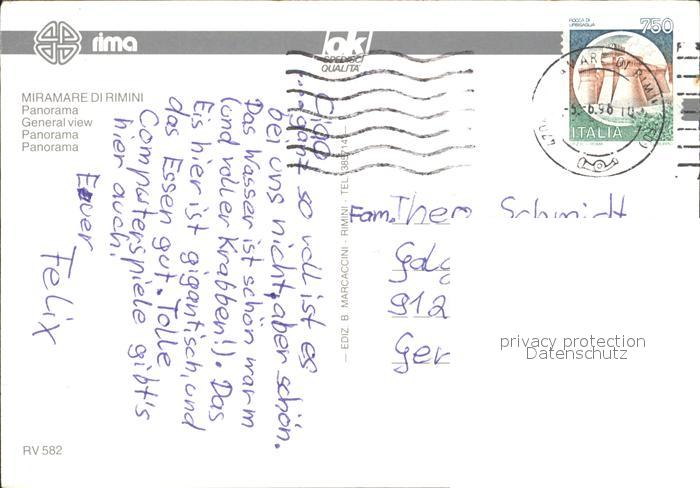 rima
ok
SPEDISCI
QUALITA'
ROCCA DI
URBISAGLIA
750
ITALIA
MIRAMARE DI RIMINI
Panorama
General view
Panorama
Panorama
Ciao
...ganz so voll ist es
bei uns nicht, aber schön.
Das Wasser ist schön warm
(und voller Krabben!). Das
Eis hier ist gigantisch, und
das Essen gut. Tolle
Computerspiele gibt's
hier auch!
Euer
Felix
— EDIZ. B. MARCACCINI - RIMINI - TEL.
Fam. Theo Schmidt
912
Ger
privacy protection
Datenschutz
RV 582